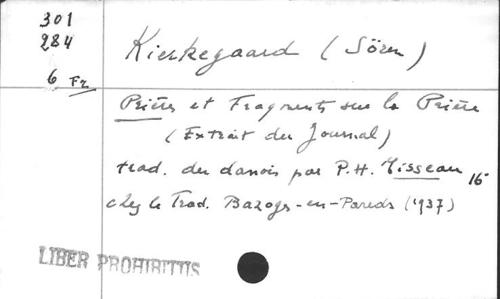 301
284
6 Fr
Kierkegaard (Sören)
Prières et Fragments sur la Prière
(Extrait du Journal)
trad. du danois par P.H. Tisseau 16°
chez le Trad. Bazoges-en-Pareds (1937)
LIBER PROHIBITUS